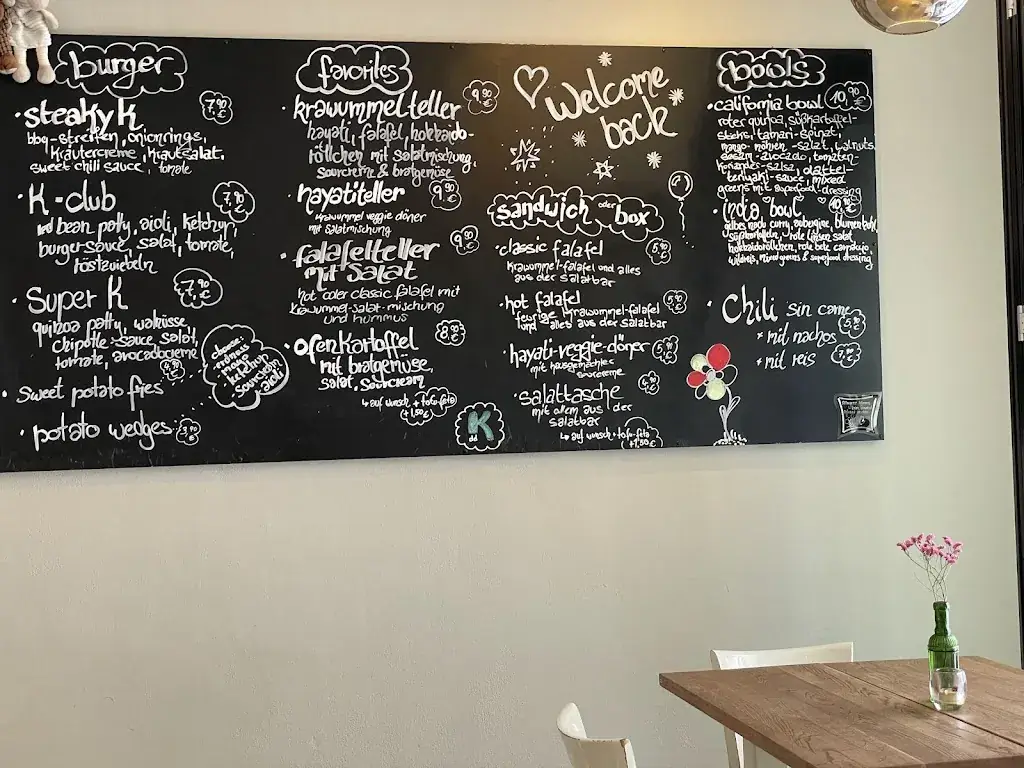 burger
steaky K 7,90 €
bbq-streifen, onionrings,
kräutercreme, krautsalat,
sweet chili sauce, tomate
K-club 7,90 €
red bean patty, aioli, ketchup,
burger-sauce, salat, tomate,
röstzwiebeln
Super K
quinoa patty, walnüsse,
chipotle-sauce, salat,
tomate, avocadocreme
Sweet potato fries
potato wedges
choose:
mayo
ketchup
sourcream
aioli
favorites
krawummelteller 9,90 €
hayati, falafel, hokkaido-
röllchen mit salatmischung,
sourcreme & bratgemüse
hayatiteller 9,90 €
krawummel veggie döner
mit salatmischung
falafelteller 9,90 €
mit salat
hot oder classic falafel mit
krawummel-salat-mischung
und hummus
ofenkartoffel 8,90 €
mit bratgemüse,
salat, sourcream
auf wunsch + tofu-feta
(+1,50 €)
K
dd
Welcome
back
sandwich oder box
classic falafel 5,90 €
krawummel-falafel und alles
aus der salatbar
hot falafel 5,90 €
feurige krawummel-falafel
und alles aus der salatbar
hayati-veggie-döner 5,90 €
mit hausgemachter
sourcreme
salattasche 4,90 €
mit allem aus der
salatbar
auf wunsch + tofu-feta
+1,50 €
bowls
california bowl 10,90 €
roter quinoa, süßkartoffel-
sticks, tamari-spinat,
mango-möhren-salat, walnuts,
sesam-avocado, tomaten-
koriander-salsa,
teriyaki-sauce, mixed
greens mit superfood-dressing
India bowl 10,90 €
gelbes curry, aubergine, blumenkohl,
süßkartoffeln, rote linsen salat
hokkaidoröllchen, rote bete carpaccio
wildreis, mixed greens & superfood dressing
Chili sin carne
* mit nachos
* mit reis